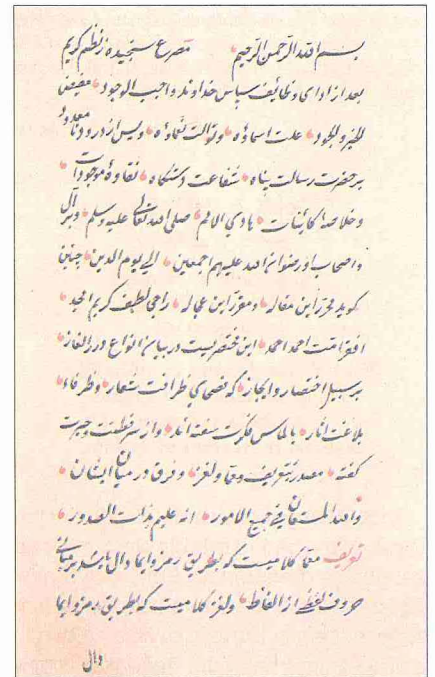 بسم الله الرحمن الرحیم مصرع سنجیده ز نظم کریم
بعد از ادای وظائف سپاس خداوند واجب الوجود مفیض
الخیر والجود علت اسماؤه وتوالت نعماؤه وپس از درود نامعدود
بر حضرت رسالت پناه شفاعت دستگاه نقاوۀ موجودات
وخلاصۀ کائنات هادی الامم صلی الله تعالی علیه وسلم وبر آل
واصحاب او رضوان الله علیهم اجمعین الی یوم الدین چنین
گوید محرر این مقاله ومقرر این عجاله راجی لطیف کریم امجد
افقر امت احمد احمد این مختصریست در بیان انواع در الغاز
بر سبیل اختصار وایجاز که فصحای ظرافت شعار وظرفاء
بلاغت آثار بالماس فکرت سفته اند واز سر فطنت وحیرت
گفته مصدر بتعریف معما ولغز وفرق در میان ایشان
والله المستعان فی جمیع الامور انه علیم بذات الصدور
تعریف معما کلامیست که بطریق رمز وایما دال باشد بر مبانی
حروف لفظی از الفاظ ولغز کلامیست که بطریق رمز وایما
دال